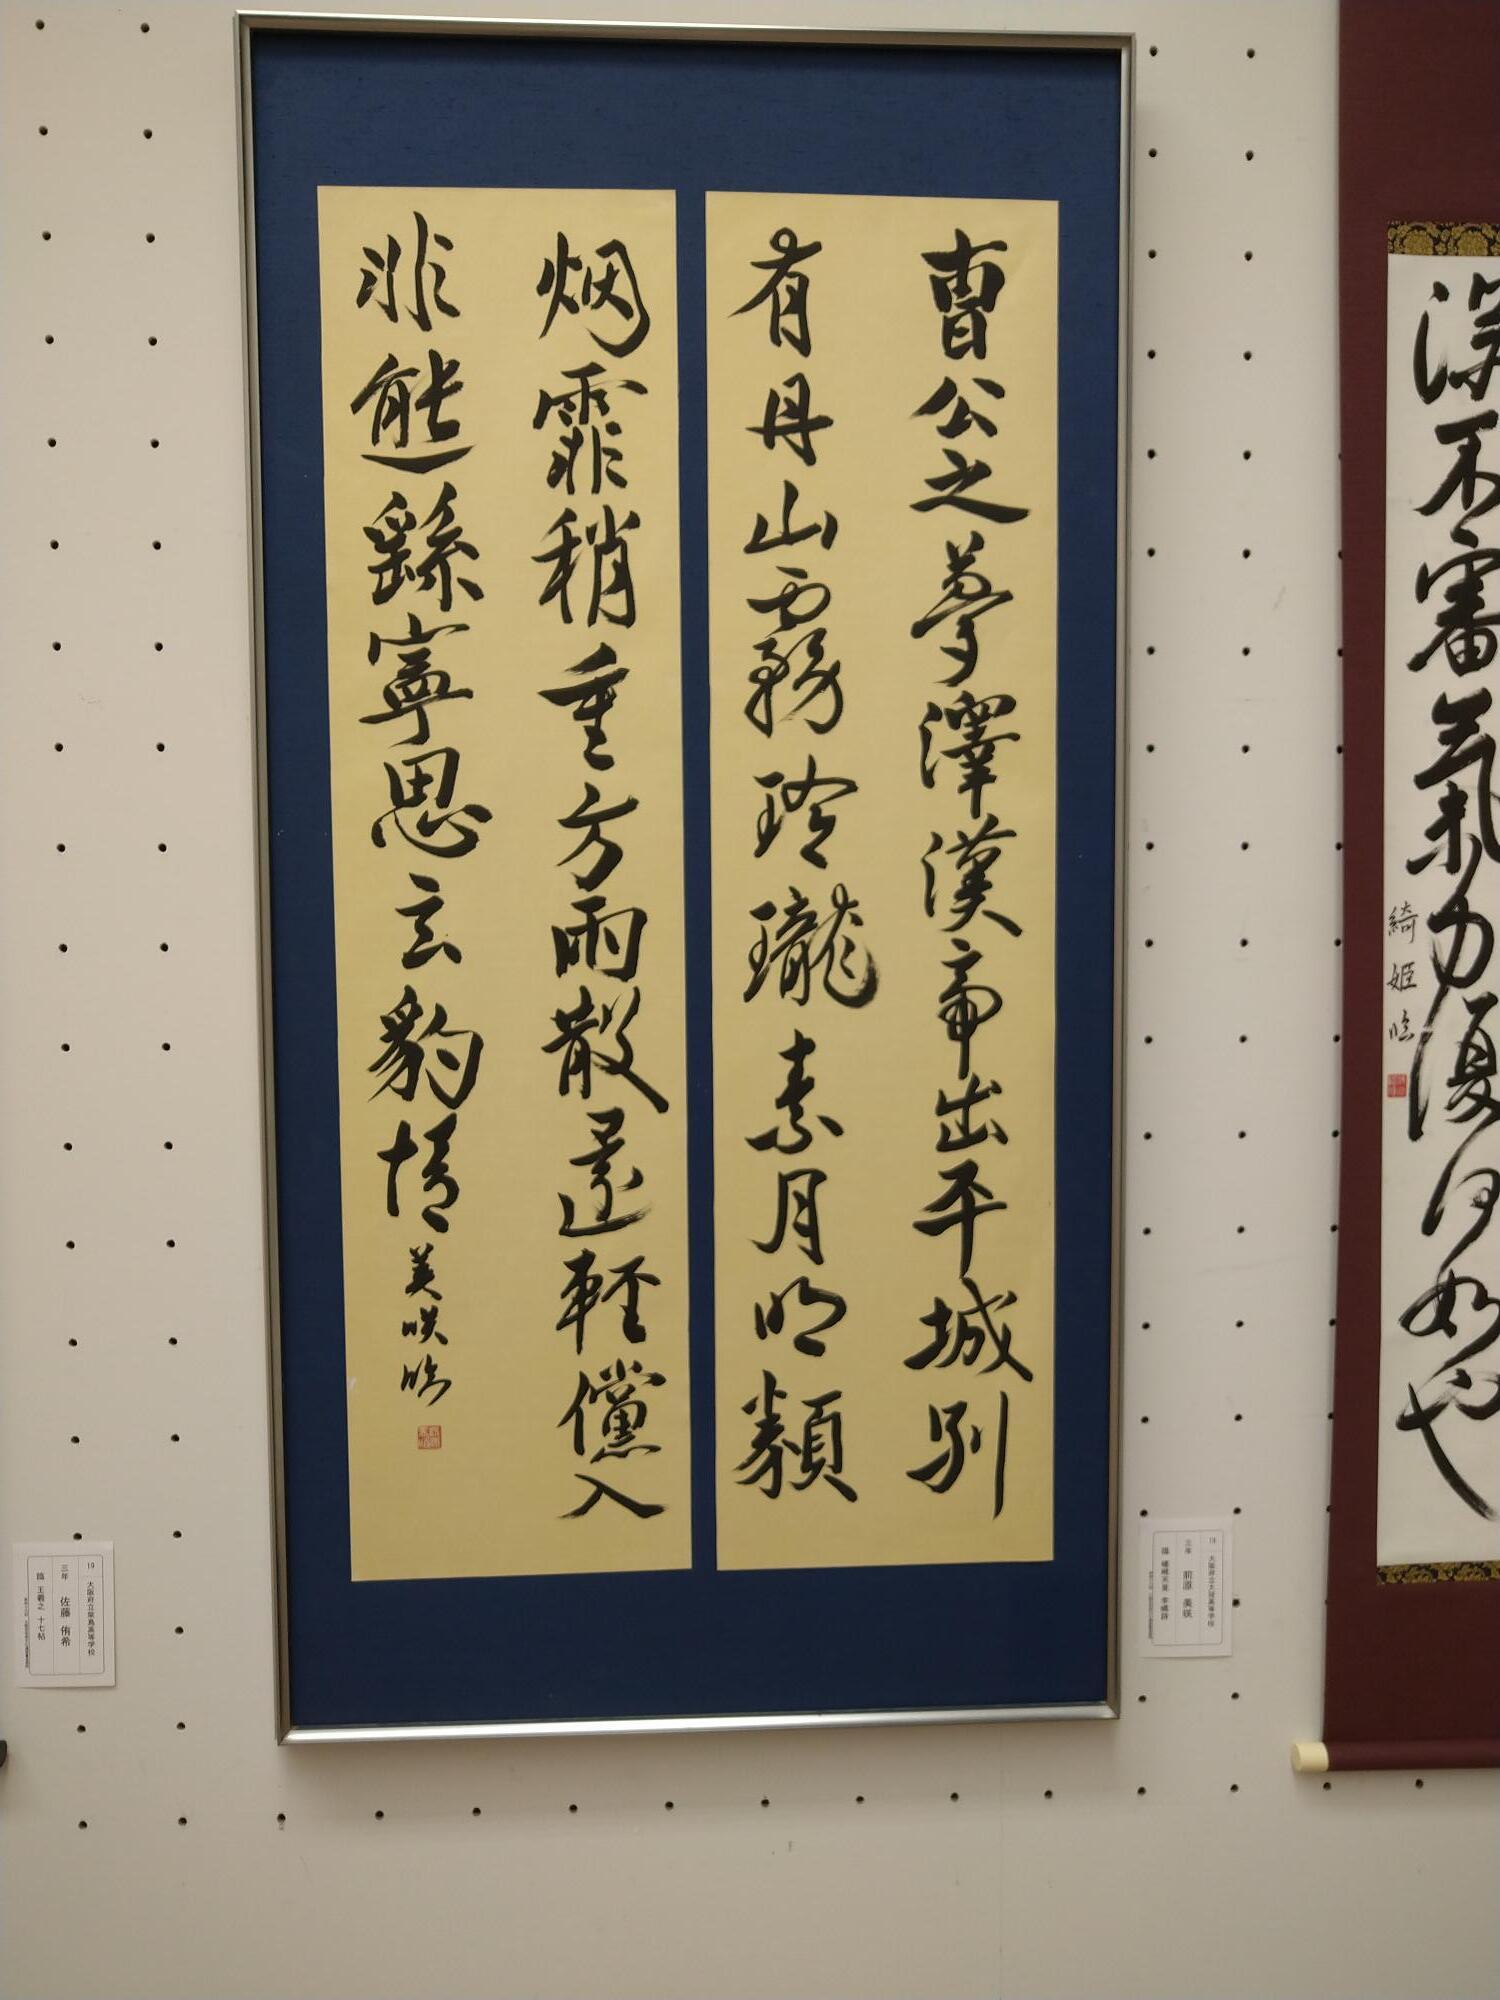 曺公之夢澤漢帝出平城別
有丹山霧玲瓏素月明類
烟霏稍重方雨散還輕儻入
非熊繇寧思玄豹情
美咲臨
深不審氣力復何如也
綺姫臨
19
大阪府立柴島高等学校
三年 佐藤 侑希
臨 王羲之 十七帖
18
三年 前原 美咲
臨 嵯峨天皇 李嶠詩